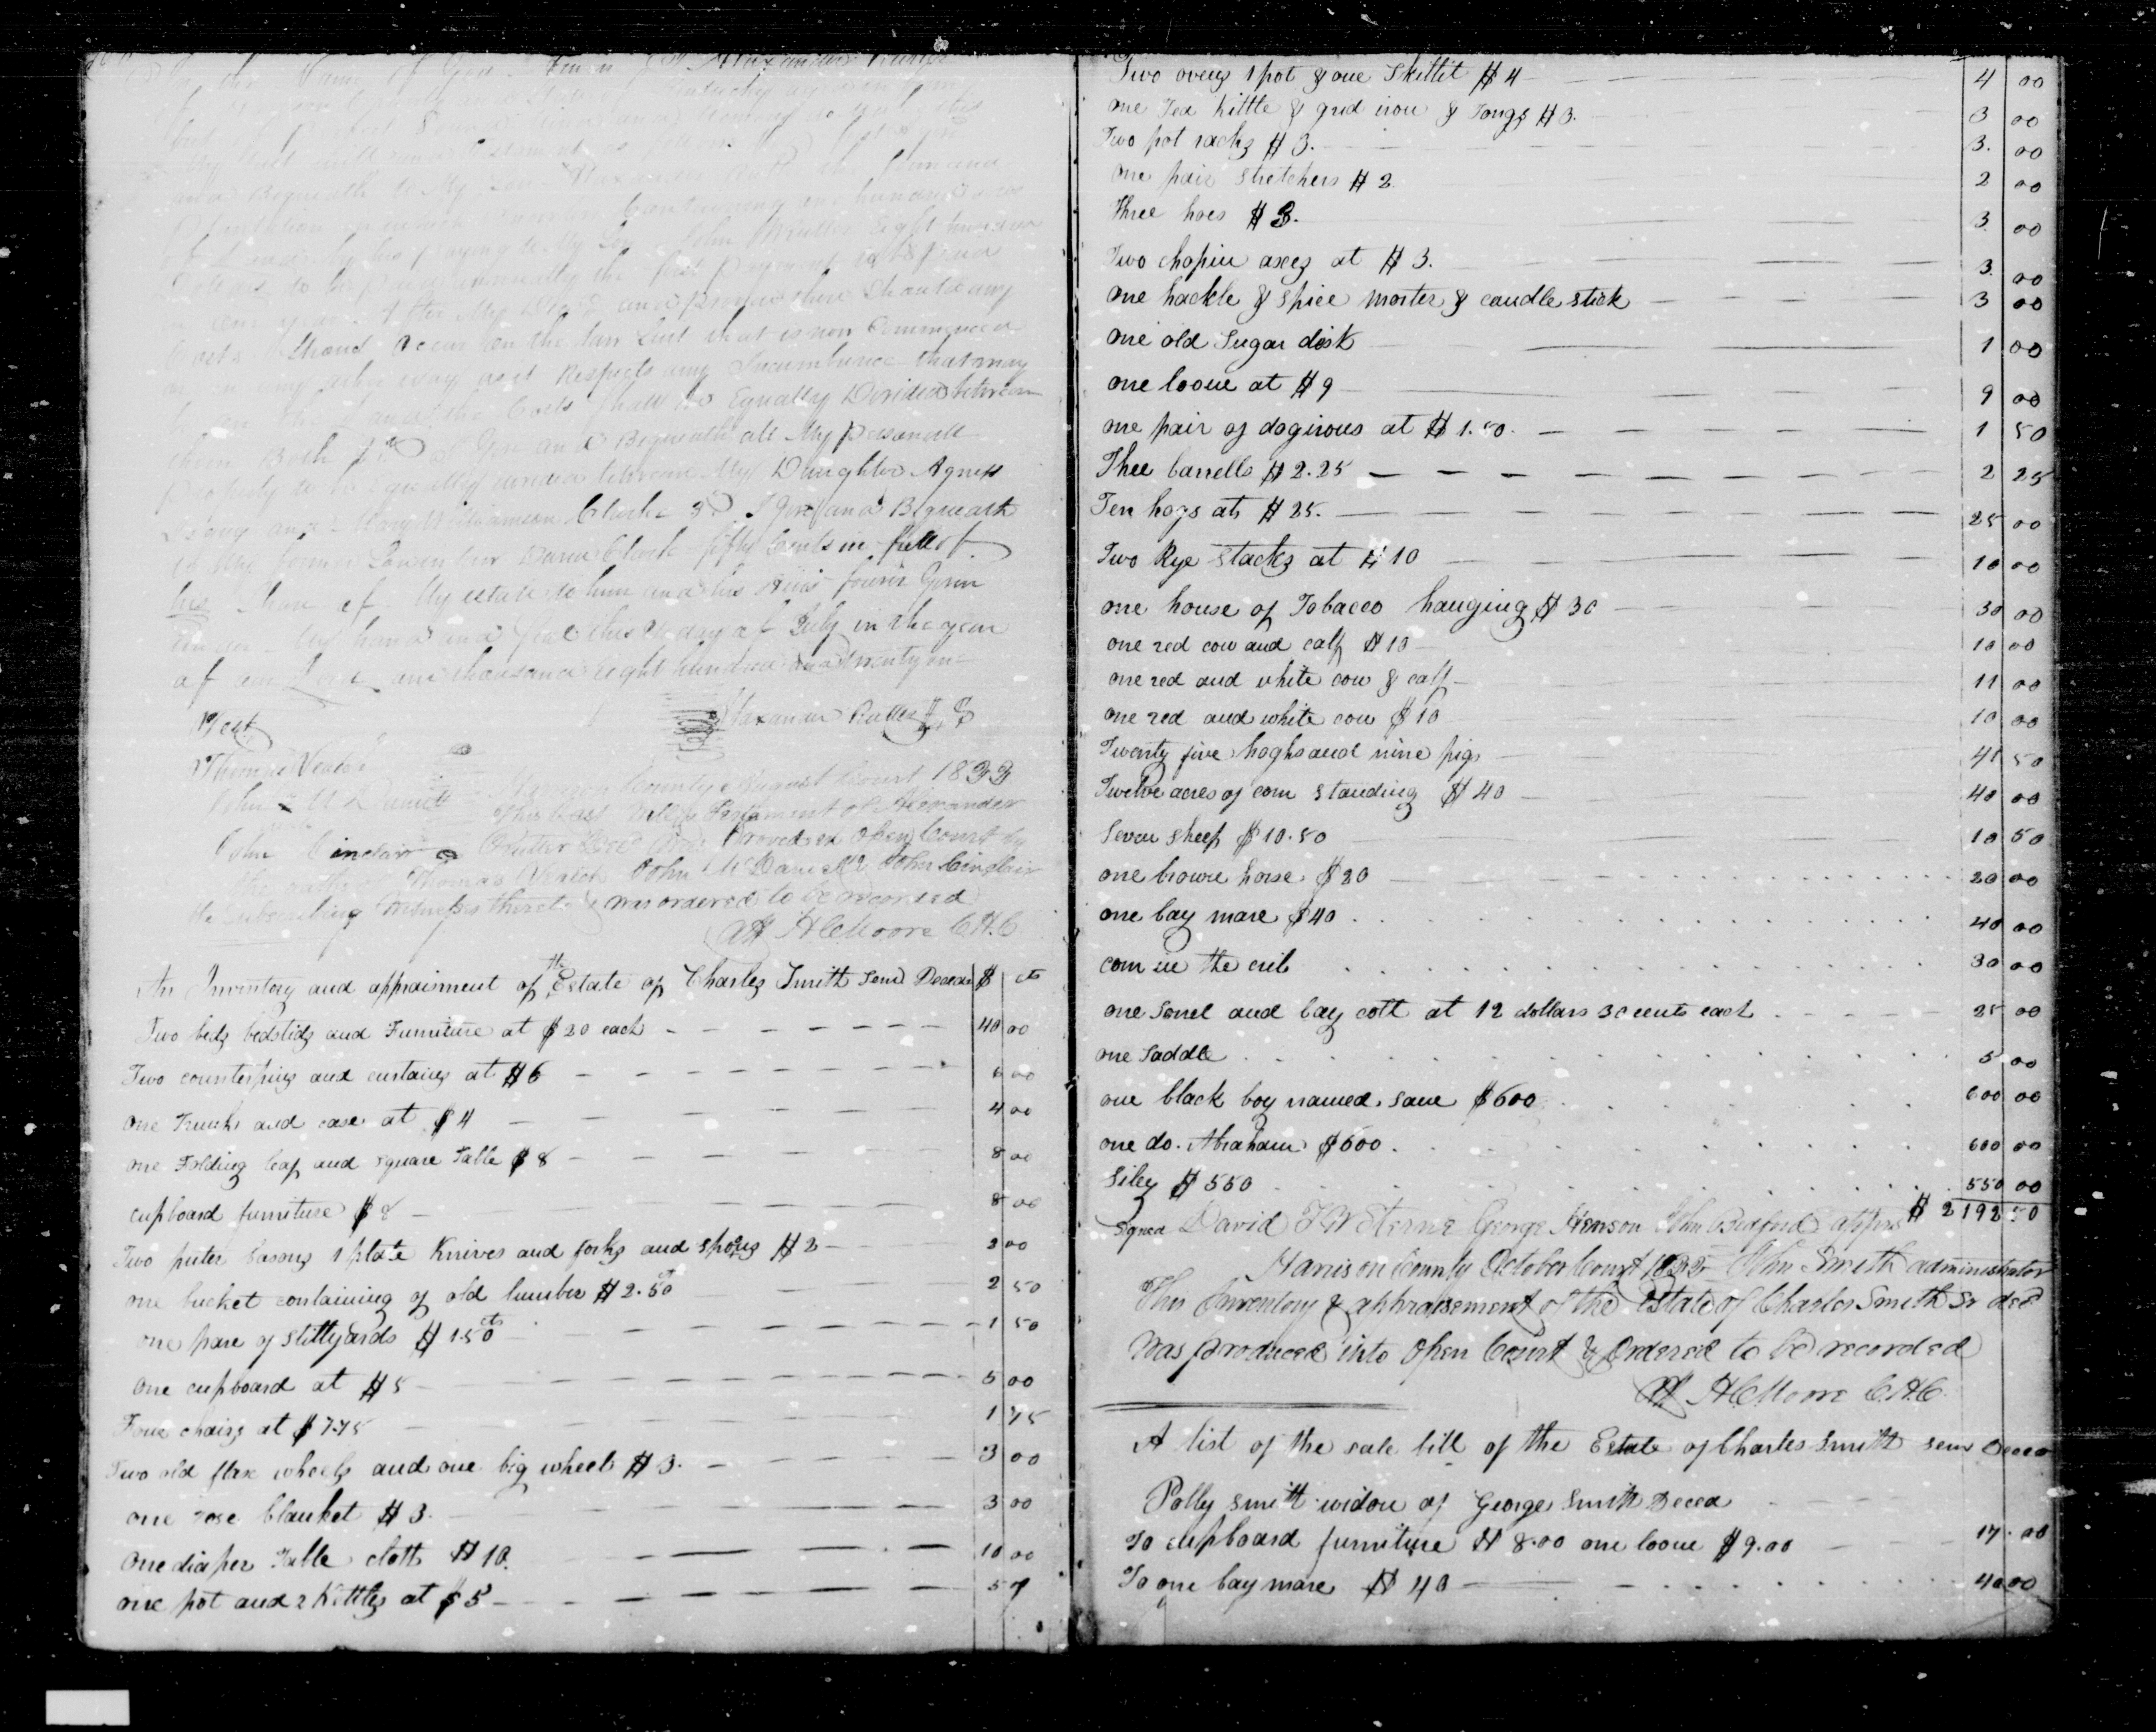 In the Name of God Amen I Alexander
but of perfect Sound Mind and Memory do
My last will and Testament as follows
and Bequeath to My Son Alexander
Plantation Containing one hundred
of Land by his paying to My Son John Rutter Eight hundred
Dollars to be paid annually the first payment to be paid
in one year After My Dec'd and provided there Should any
Costs Should Occur on the Law Suit that is now Commenced
or in any other way as it Respects any Incumbrance that may
be on the Land the Costs shall be Equally Divided between
them Both 2nd I Give and Bequeath all My personall
property to be Equally divided between My Daughter Agness
and Clarke 3d I Give and Bequeath
to My former Son in law David Clark fifty Cents in full of
his Share of My estate to him and his Heirs Given
under My hand and Seal this day of July in the year
of our Lord one thousand eight hundred and twenty
Test
Alexander Rutter
Thomas Veatch
John McDaniel
Harrison County August Court 1833
This Last Will & Testament of Alexander
John Cinclair
Rutter Decd was Proved in Open Court by
the oaths of Thomas Veatch John McDaniel & John Cinclair
the Subscribing Witnesses thereto & was ordered to be recorded
Att H C Moore C.H.C
An Inventory and appraisment of the Estate of Charles Smith Senr Decead $ cts
Two beds bedstids and Furniture at $20 each 40 00
Two counterpins and curtaing at $6 6 00
one Trunk and case at $4 4 00
one Folding leaf and square Table $8 8 00
cupboard furniture $8 8 00
Two puter basons 1 plate Knives and forks and spoons $2 2 00
one bucket containing of old lumber $2.50 cts 2 50
one pare of stillyards $1.50 cts 1 50
one cupboard at $5 5 00
Four chairs at $1.75 1 75
Two old flax wheels and one big wheel $3. 3 00
one rose blanket $3. 3 00
One diaper Table cloth $10. 10 00
one pot and 2 Kittles at $5 5
Two ovens 1 pot & one Skillit $4 4 00
one Tea Kittle & grid iron & Tongs $3. 3 00
Two pot racks $3. 3. 00
one pair stretchers $2 2 00
three hoes $3. 3 00
Two chopin axes at $3. 3 00
one hackle & spice morter & candle stick 3 00
one old Sugar disk 1 00
one loome at $9 9 00
one pair of dogirons at $1.50. 1 50
Thee barrells $2.25 2 25
Ten hogs at $25. 25 00
Two Rye stacks at $10 10 00
one house of Tobacco hanging $30 30 00
one red cow and calf $10 10 00
one red and white cow & calf 11 00
one red and white cow $10 10 00
Twenty five hoghs and nine pigs 41 50
Twelve acres of corn standing $40 40 00
Seven sheep $10.50 10 50
one browne horse $20 20 00
one bay mare $40 40 00
corn in the crib 30 00
one Sorrel and bay colt at 12 dollars 50 cents each 25 00
one Saddle 5 00
one black boy named Sam $600 600 00
one do. Abraham $600. 600 00
Siley $550 550 00
$ 2192 50
signed David K W Sterne George Henson John Bedford apprs
Harrison County October Court 1833 John Smith administrator
This Inventory & appraisement of the estate of Charles Smith Sr decd
was produced into Open Court & Ordered to be recorded
Att H C Moore C.H.C.
A list of the sale bill of the Estate of Charles Smith senr Decead
Polly Smith widow of George Smith Deced
To cupboard furniture $8.00 one loome $9.00 17.00
To one bay mare $40 40 00